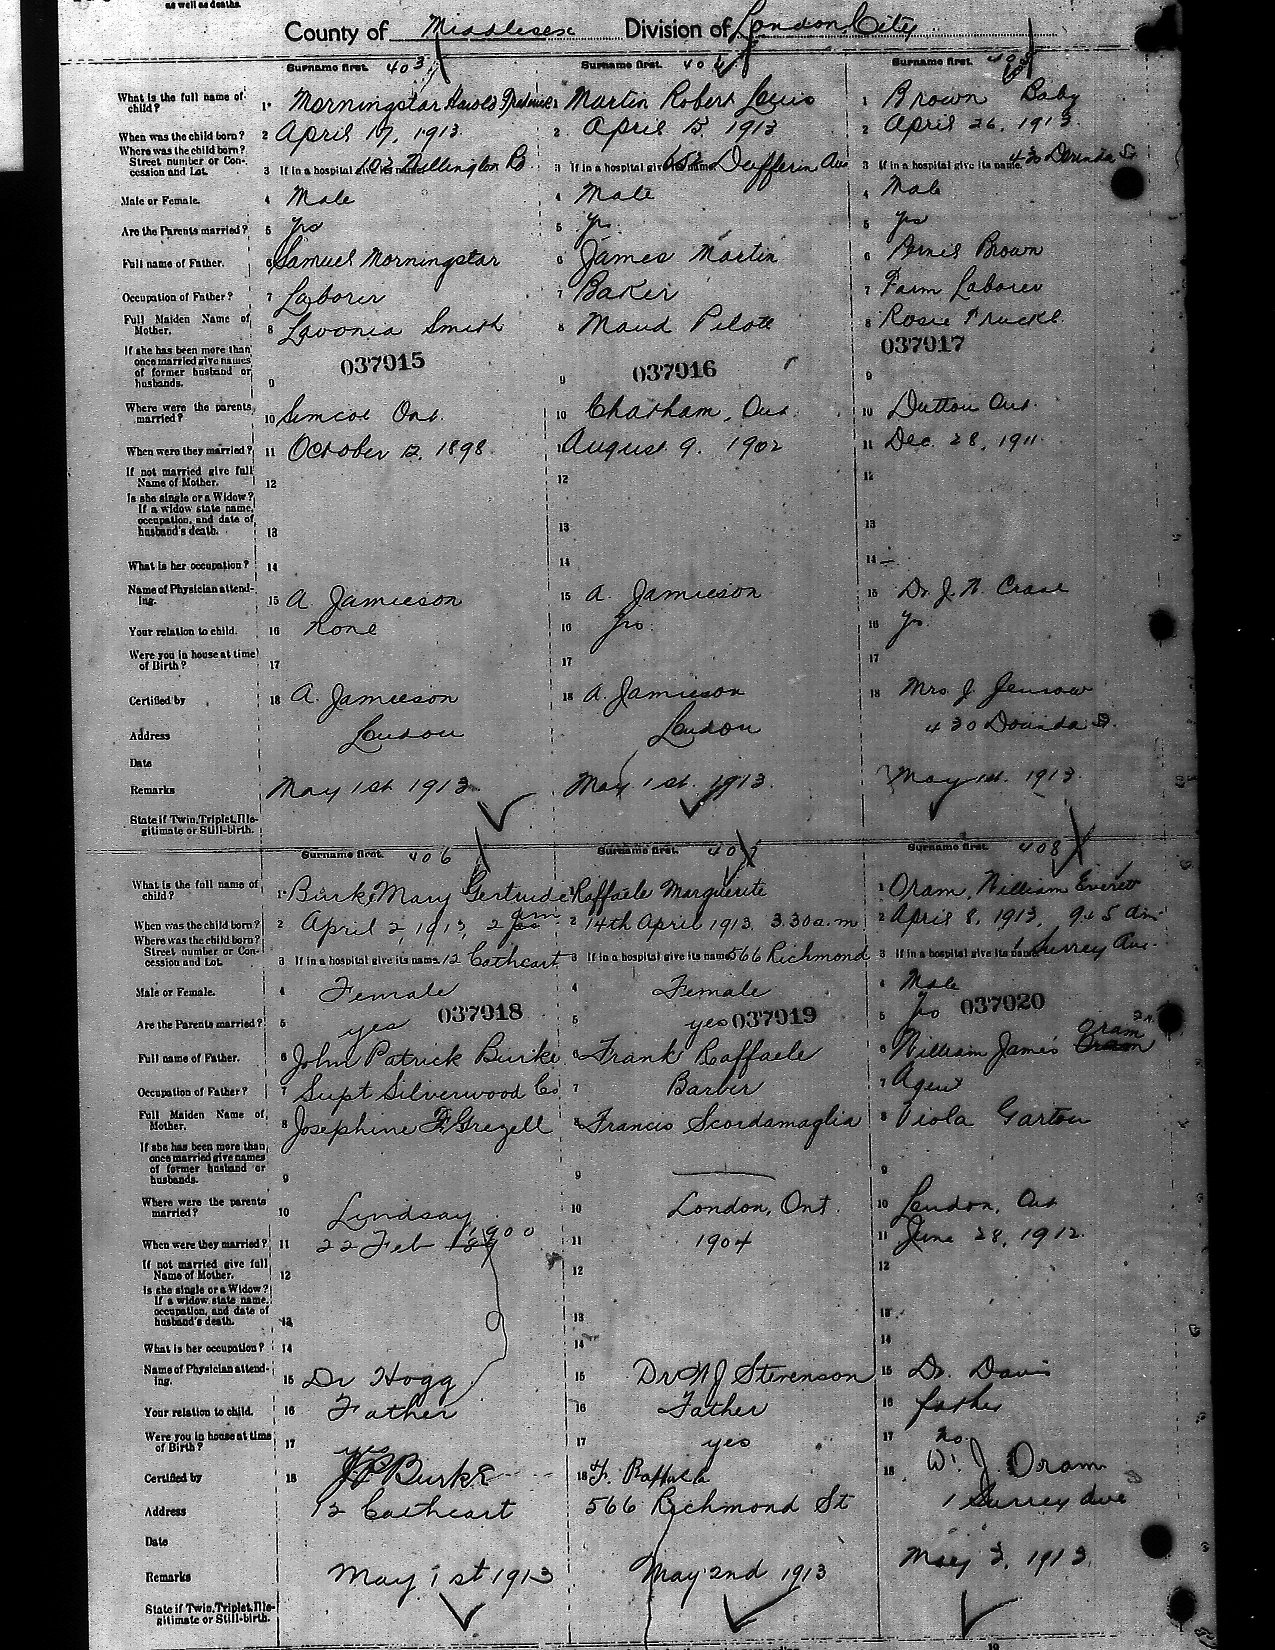 as well as deaths.
County of Middlesex Division of London City
Surname first. 403 Surname first. 404 Surname first. 405
What is the full name of child? 1 Morningstar Harold Frederick Martin Robert Louis 1 Brown Baby
When was the child born? 2 April 17, 1913 2 April 15, 1913 2 April 26, 1913
Where was the child born? Street number or Concession and Lot. 3 If in a hospital give its name 103 Wellington Rd 3 If in a hospital give its name 652 Dufferin Ave 3 If in a hospital give its name. 430 Dorinda St
Male or Female. 4 Male 4 Male 4 Male
Are the Parents married? 5 yes 5 yes 5 yes
Full name of Father. 6 Samuel Morningstar 6 James Martin 6 Brown
Occupation of Father? 7 Laborer 7 Baker 7 Farm Laborer
Full Maiden Name of Mother. 8 Lavonia Smith 8 Maud Pilote 8 Rosie Truckle
037015 037016 037017
If she has been more than once married give names of former husband or husbands. 9 9 9
Where were the parents married? 10 Simcoe Ont. 10 Chatham, Ont. 10 Dutton Ont.
When were they married? 11 October 12, 1898 11 August 9, 1902 11 Dec. 28, 1911
If not married give full Name of Mother. 12 12 12
Is she single or a Widow? If a widow state name, occupation, and date of husband's death. 13 13 13
What is her occupation? 14 14 14
Name of Physician attending. 15 A. Jamieson 15 A. Jamieson 15 Dr J. N.
Your relation to child. 16 None 16 16
Were you in house at time of Birth? 17 17 17
Certified by 18 A. Jamieson 18 A. Jamieson 18 Mrs. J.
Address London London 430 Dorinda St.
Date
Remarks May 1st 1913 May 1st. 1913. May 1st. 1913.
State if Twin, Triplet, Illegitimate or Still-birth.
Surname first. 406 Surname first. 407 Surname first. 408
What is the full name of child? 1 Burke, Mary Gertrude 1 Raffaele Marguerite 1 Oram, William Everett
When was the child born? 2 April 2, 1913, 2 am 2 14th April 1913 3.30 a.m 2 April 8, 1913,
Where was the child born? Street number or Concession and Lot. 3 If in a hospital give its name. 12 Cathcart 3 If in a hospital give its name 566 Richmond 3 If in a hospital give its name. 1 Surrey Ave.
Male or Female. 4 Female 4 Female 4 Male
037018 037019 037020
Are the Parents married? 5 yes 5 yes 5 yes
Full name of Father. 6 John Patrick Burke 6 Frank Raffaele 6 William James Oram
Occupation of Father? 7 Supt Silverwood Co 7 Barber 7 Agent
Full Maiden Name of Mother. 8 Josephine F. Grezell 8 Francis Scordamaglia 8 Viola Garton
If she has been more than once married give names of former husband or husbands. 9 9 9
Where were the parents married? 10 Lindsay 10 London, Ont. 10 London, Ont
When were they married? 11 22 Feb 1900 11 1904 11 June 28, 1912
If not married give full Name of Mother. 12 12 12
Is she single or a Widow? If a widow state name, occupation, and date of husband's death. 13 13 13
What is her occupation? 14 14 14
Name of Physician attending. 15 Dr Hogg 15 Dr W J Stevenson 15 Dr. Davis
Your relation to child. 16 Father 16 Father 16 father
Were you in house at time of Birth? 17 yes 17 yes 17 no
Certified by 18 JP Burke 18 F. Raffaele 18 W. J. Oram
Address 12 Cathcart 566 Richmond St 1 Surrey Ave
Date
Remarks May 1st 1913 May 2nd 1913 May 3, 1913.
State if Twin, Triplet, Illegitimate or Still-birth.